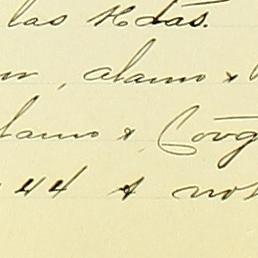 las Hdas.
, alamo &
alamo & Cong
44 & not